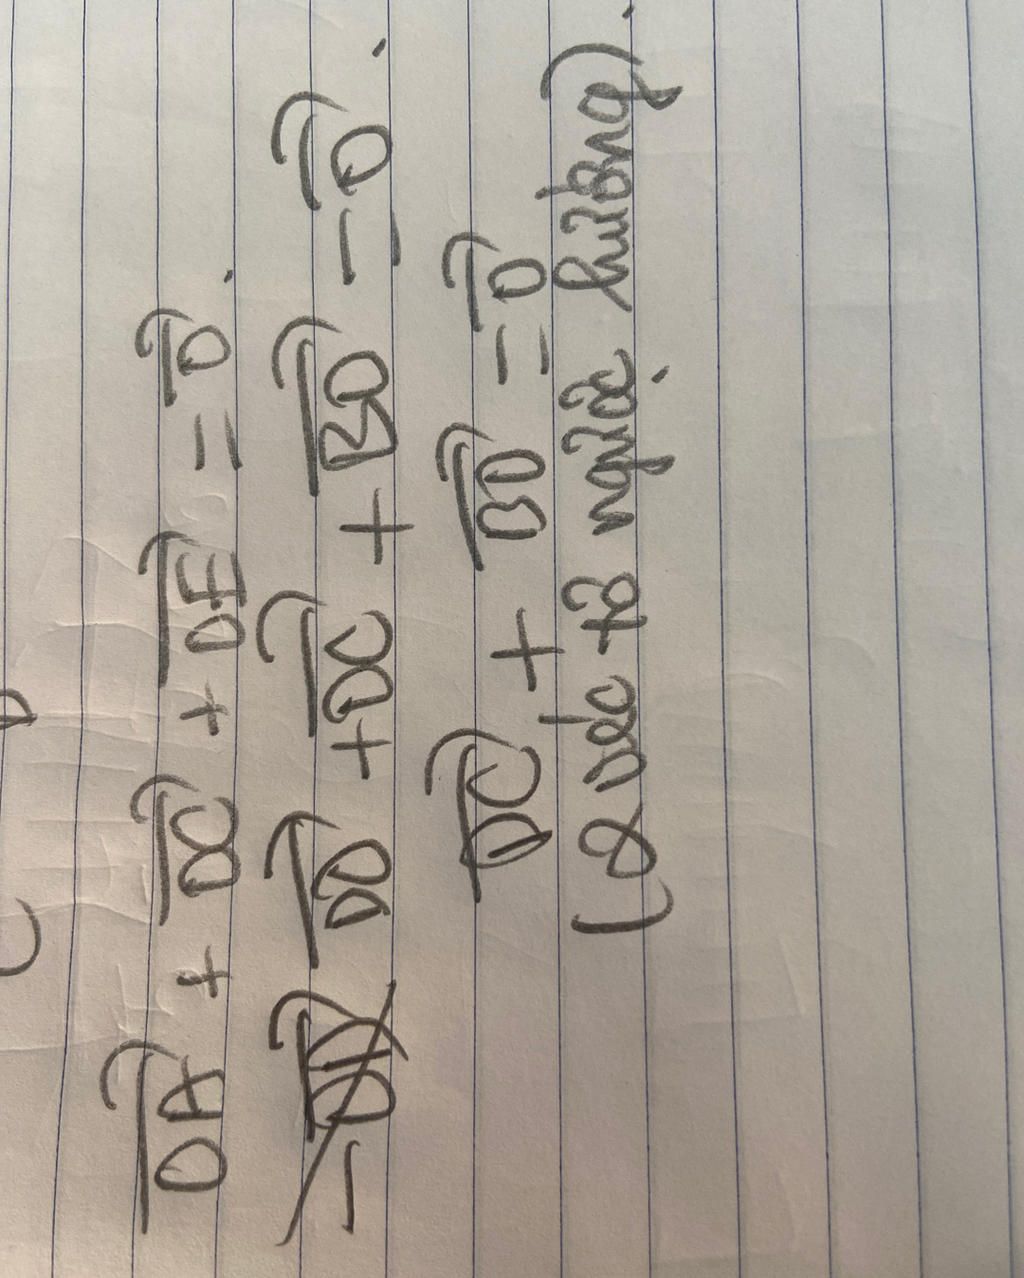 OA + OC + OE = O.
DO + OC + BO = O.
OC + BO = O
(2 véc tơ ngược hướng).